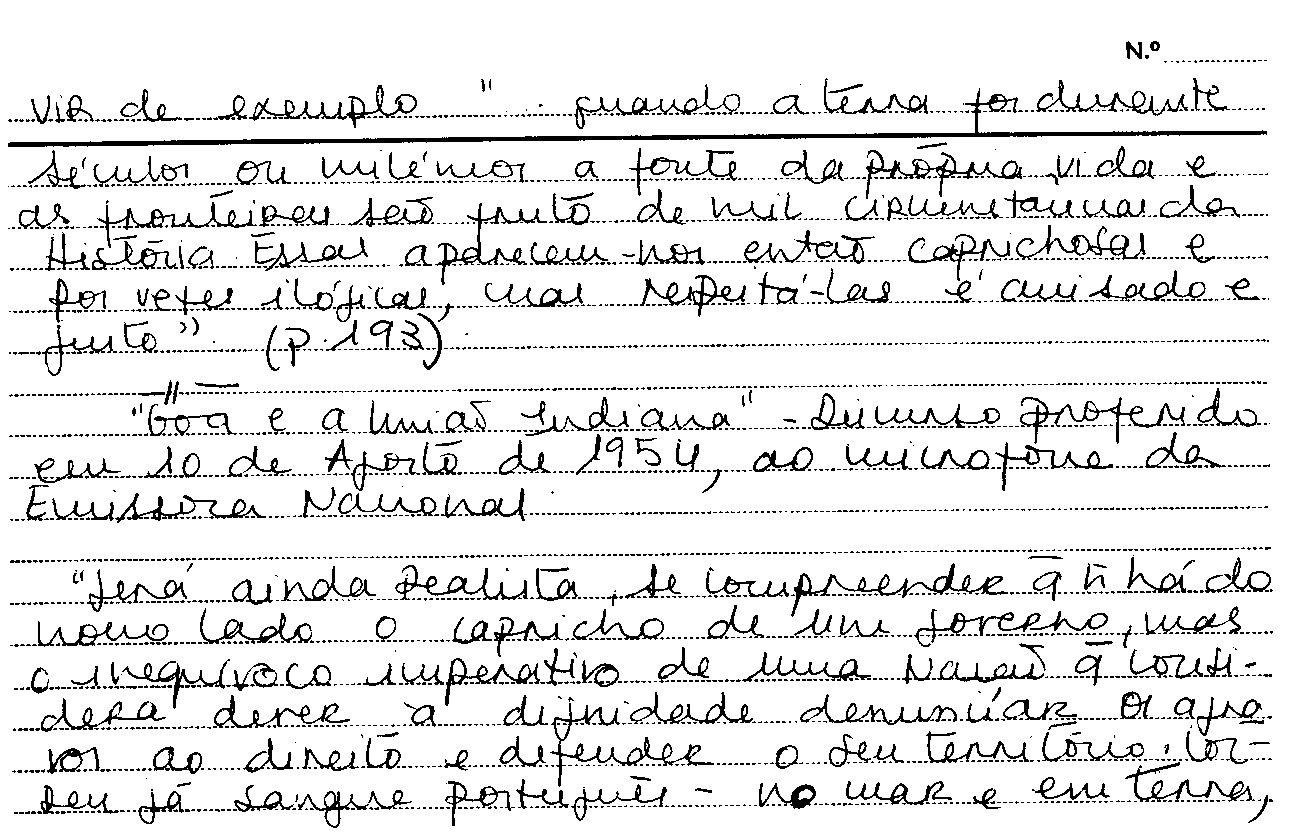 N.º
vir de exemplo " quando a terra foi durante
séculos ou milénios a fonte da própria vida e
as fronteiras são fruto de mil circunstancias da
História Essas aparecem-nos então caprichosas e
por vezes ilógicas, mas respeitá-las é avisado e
justo". (p. 193).
"Goa e a União Indiana" - Discurso proferido
em 10 de Agosto de 1954, ao microfone da
Emissora Nacional
"Será ainda realista, se compreender q̄ ñ há do
nosso lado o capricho de um governo, mas
o inequívoco imperativo de uma Nação q̄ consi-
dera dever à dignidade denunciar os agra
vos ao direito e defender o seu território.
seu já sangue português - no mar e em terra,